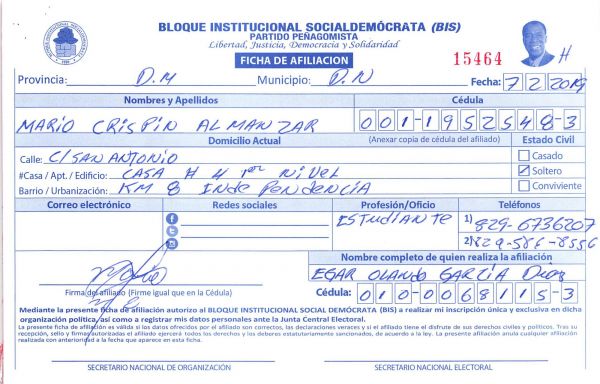 BLOQUE INSTITUCIONAL SOCIALDEMÓCRATA (BIS)
PARTIDO PEÑAGOMISTA
Libertad, Justicia, Democracia y Solidaridad
FICHA DE AFILIACION
15464
H
Provincia: D.M Municipio: D.N Fecha: 7/2/2019
Nombres y Apellidos Cédula
MARIO CRISPIN ALMANZAR 001-1952548-3
Domicilio Actual (Anexar copia de cédula del afiliado) Estado Civil
Calle: C/SAN ANTONIO Casado
#Casa / Apt. / Edificio: CASA # 4 1er NIVEL Soltero
Barrio / Urbanización: KM 8 INDEPENDENCIA Conviviente
Correo electrónico Redes sociales Profesión/Oficio Teléfonos
ESTUDIANTE 1) 829-6736207
2) 829-586-8556
Nombre completo de quien realiza la afiliación
EGAR OLANDO GARCIA Diaz
Firma del afiliado (Firme igual que en la Cédula) Cédula: 010-0068115-3
Mediante la presente ficha de afiliación autorizo al BLOQUE INSTITUCIONAL SOCIAL DEMÓCRATA (BIS) a realizar mi inscripción única y exclusiva en dicha
organización política, así como a registrar mis datos personales ante la Junta Central Electoral.
La presente ficha de afiliación es válida si los datos ofrecidos por el afiliado son correctos, las declaraciones veraces y si el afiliado tiene el disfrute de sus derechos civiles y políticos. Tras su
recepción, sello y firmas autorizadas el afiliado ejercerá todos los derechos y los deberes estatutariamente sancionados, de acuerdo a la ley. La presente afiliación anula cualquier afiliación
realizada con anterioridad a la fecha que aparece en esta ficha.
SECRETARIO NACIONAL DE ORGANIZACIÓN SECRETARIO NACIONAL ELECTORAL